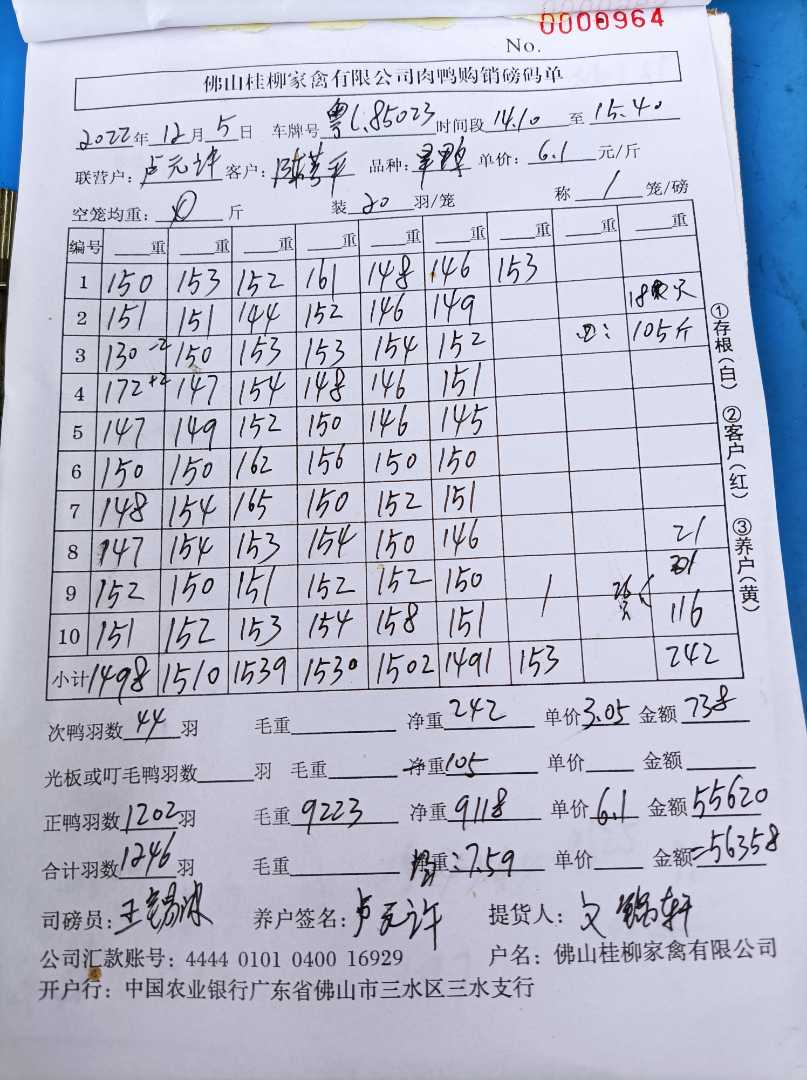 No. 0000964
佛山桂柳家禽有限公司肉鸭购销磅码单
2022年 12月 5日 车牌号 粤L.85023 时间段 14.10 至 15.40
联营户: 卢元许 客户: 陈 平 品种: 单价: 6.1 元/斤
空笼均重: 0 斤 装 20 羽/笼 称 1 笼/磅
编号 重 重 重 重 重 重 重 重 重
1 150 153 152 161 148 146 153
2 151 151 144 152 146 149 18 只
3 130 -2 150 153 153 154 152 : 105斤
4 172 +2 147 154 148 146 151
5 147 149 152 150 146 145
6 150 150 162 156 150 150
7 148 154 165 150 152 151
8 147 154 153 154 150 146 21
9 152 150 151 152 152 150 1 26只
10 151 152 153 154 158 151 116
小计 1498 1510 1539 1530 1502 1491 153 242
次鸭羽数 44 羽 毛重 净重 242 单价 3.05 金额 738
光板或叮毛鸭羽数 羽 毛重 净重 105 单价 金额
正鸭羽数 1202 羽 毛重 9223 净重 9118 单价 6.1 金额 55620
合计羽数 1246 羽 毛重 净重: 7.59 单价 金额 =56358
司磅员: 王 养户签名: 卢元许 提货人: 文 轩
公司汇款账号: 4444 0101 0400 16929 户名: 佛山桂柳家禽有限公司
开户行: 中国农业银行广东省佛山市三水区三水支行
①存根(白) ②客户(红) ③养户(黄)